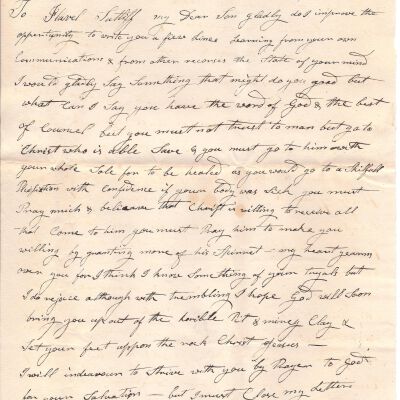 To Flavel Sutliff my Dear Son gladly do I improve the
oppertunity to write you a few lines Learning from your own
Communications & from other the State of your mind
I would gladly Say Something that might do you good but
what Can I Say you have the word of God & the best
of Councel but you must not trust to man but go to
Christ who is able Save & you must go to him with
your whole Sole for to be healed as you would go to a Skilfull
with Confidence if your body was Sick you must
Pray much & beleave that Christ is willing to receive all
that Come to him you must Pray him to make you
willing by granting more of his Spirret — my heart yearns
over you for I think I know Something of your tryals but
I do rejoice although with trembling I hope God will Soon
bring you up out of the horible Pit & mirey Clay &
Set your feet uppon the rock Christ Jesus —
I will indeavour to Strive with you by Prayer to God
for your Salvation — but I must Close my Letters